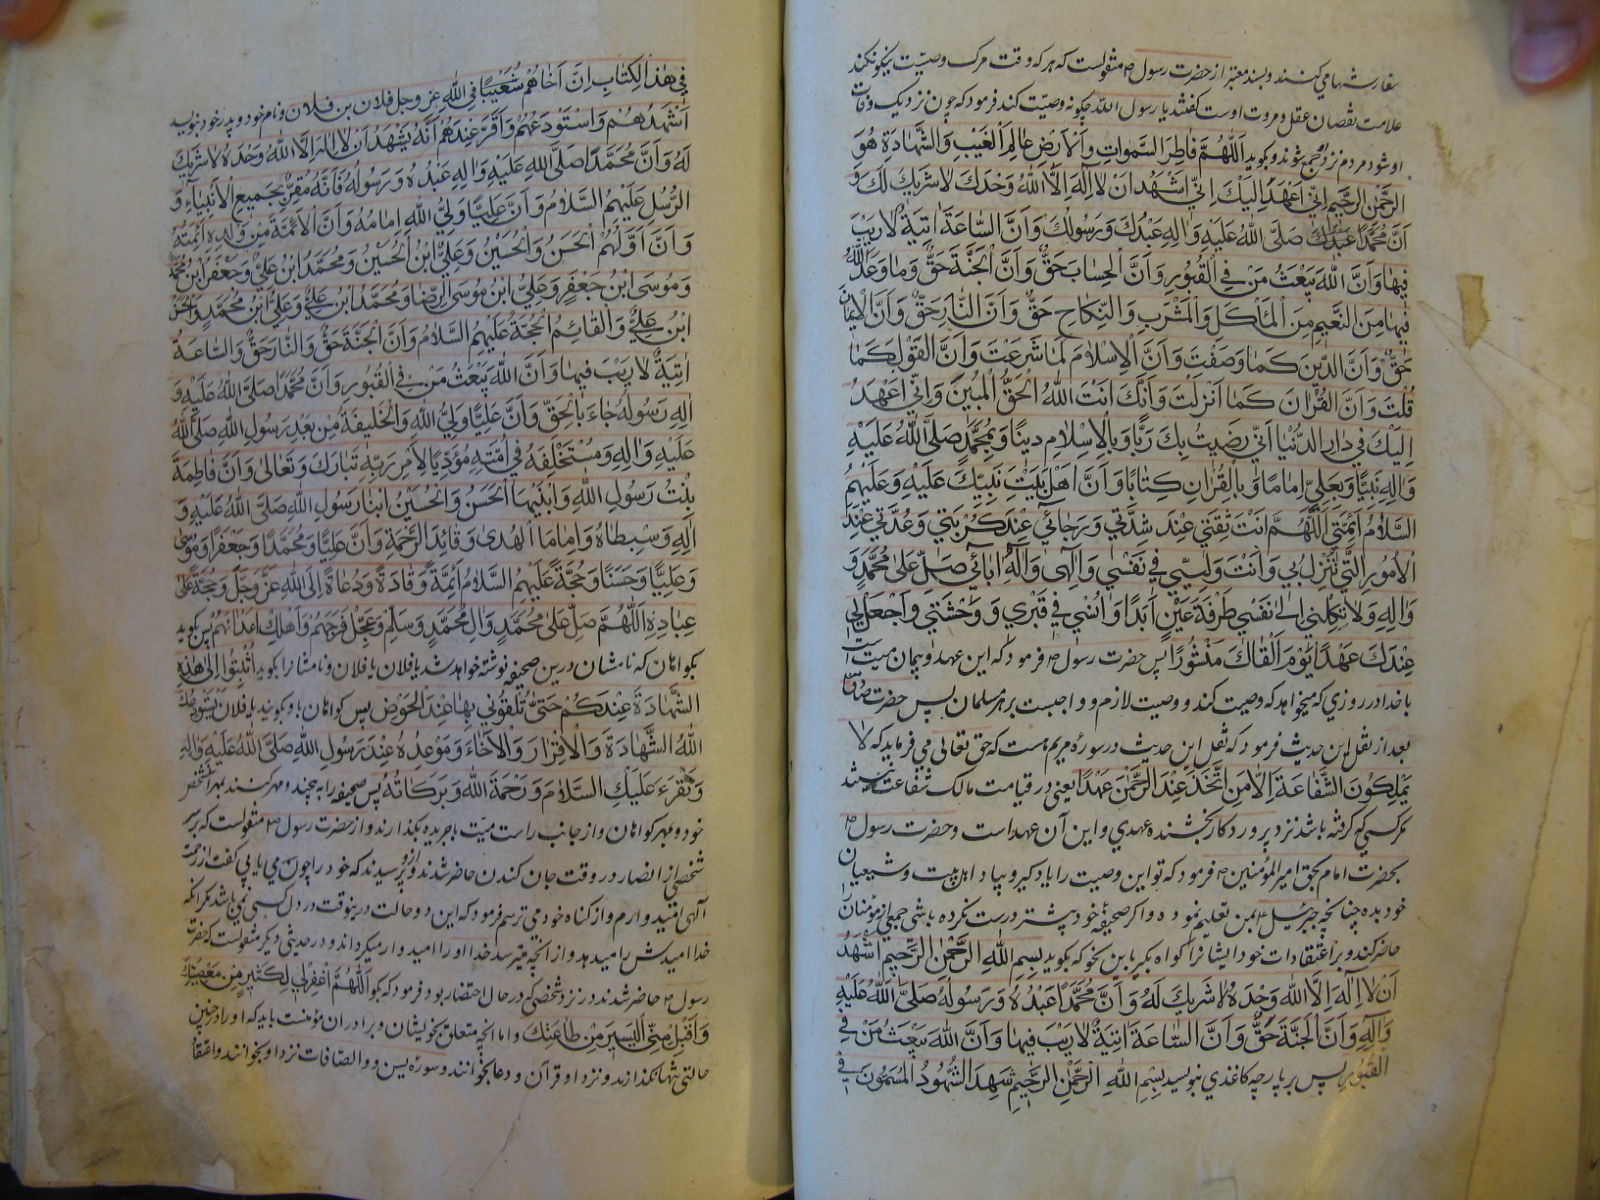 سفارشها می کنند و بسند معتبر از حضرت رسول ص منقولست که هر که وقت مرک وصیت نیکو نکند
علامت نقصان عقل و مروت اوست کفتند یا رسول الله چکونه وصیت کند فرمود که چون نزدیک وفات
او شود مردم نزد او جمع شوند و بکوید اَللّهُمَّ فاطِرَ السَّمواتِ وَالْاَرْضِ عالِمَ الْغَیْبِ وَالشَّهادَةِ هُوَ
الرَّحْمنُ الرَّحیمُ اِنّی اَعْهَدُ اِلَیْکَ اِنّی اَشْهَدُ اَنْ لا اِلهَ اِلاَّ اللهُ وَحْدَکَ لا شَریکَ لَکَ وَ
اَنَّ مُحَمَّداً صَلَّی اللهُ عَلَیْهِ وَالِهِ عَبْدُکَ وَرَسُولُکَ وَاَنَّ السّاعَةَ اتِیَةٌ لا رَیْبَ
فیها وَاَنَّ اللهَ یَبْعَثُ مَنْ فِی الْقُبُورِ وَاَنَّ الْحِسابَ حَقٌّ وَاَنَّ الْجَنَّةَ حَقٌّ وَما وَعَدَ اللهُ
فیها مِنَ النَّعیمِ مِنَ الْمَأکَلِ وَالْمَشْرَبِ وَالنِّکاحِ حَقٌّ وَاَنَّ النّارَ حَقٌّ وَاَنَّ الْایمانَ
حَقٌّ وَاَنَّ الدّینَ کَما وَصَفْتَ وَاَنَّ الْاِسْلامَ کَما شَرَعْتَ وَاَنَّ الْقَوْلَ کَما
قُلْتَ وَاَنَّ الْقُرْانَ کَما اَنْزَلْتَ وَاَنَّکَ اَنْتَ اللهُ الْحَقُّ الْمُبینُ وَاِنّی اَعْهَدُ
اِلَیْکَ فی دارِ الدُّنْیا اَنّی رَضیتُ بِکَ رَبّاً وَبِالْاِسْلامِ دیناً وَبِمُحَمَّدٍ صَلَّی اللهُ عَلَیْهِ
وَالِهِ نَبِیّاً وَبِعَلِیٍّ اِماماً وَبِالْقُرانِ کِتاباً وَاَنَّ اَهْلَ بَیْتِ نَبِیِّکَ عَلَیْهِ وَعَلَیْهِمُ
السَّلامُ اَئِمَّتی اَللّهُمَّ اَنْتَ ثِقَتی عِنْدَ شِدَّتی وَرَجائی عِنْدَ کُرْبَتی وَعُدَّتی عِنْدَ
الْاُمُورِ الَّتی تَنْزِلُ بی وَاَنْتَ وَلِیّی فی نَفْسی وَاِلهی وَاِلهُ ابائی صَلِّ عَلی مُحَمَّدٍ وَ
وَالِهِ وَلا تَکِلْنی اِلی نَفْسی طَرْفَةَ عَیْنٍ اَبَداً وَانِسْنی فی قَبْری وَوَحْشَتی وَاجْعَلْ لی
عِنْدَکَ عَهْداً یَوْمَ اَلْقاکَ مَنْشُوراً پس حضرت رسول ص فرمود که این عهد و پیمان میت است
با خدا در روزی که میخواهد که وصیت کند و وصیت لازم و واجبست بر هر مسلمان پس حضرت صادق
بعد از نقل این حدیث فرمود که نقل این حدیث در سوره مریم هست که حق تعالی می فرماید که لا
یَمْلِکُونَ الشَّفاعَةَ اِلاّ مَنِ اتَّخَذَ عِنْدَ الرَّحْمنِ عَهْداً یعنی در قیامت مالک شفاعت نیستند
مکر کسی که کرفته باشد نزد پروردکار بخشنده عهدی و این آن عهد است و حضرت رسول ص
بحضرت امام بحق امیرالمؤمنین ع فرمود که تو این وصیت را یاد کیر و بیاد اهل بیت و شیعیان
خود بده چنانچه جبرئیل بمن تعلیم نموده و اکر صحیفه خود پیشتر درست نکرده باشی جمعی از مؤمنان را
حاضر کند و بر اعتقادات خود ایشانرا کواه بکیرد باین نحو که بکوید بِسْمِ اللهِ الرَّحْمنِ الرَّحیمِ اَشْهَدُ
اَنْ لا اِلهَ اِلاَّ اللهُ وَحْدَهُ لا شَریکَ لَهُ وَاَنَّ مُحَمَّداً عَبْدُهُ وَرَسُولُهُ صَلَّی اللهُ عَلَیْهِ
وَالِهِ وَاَنَّ الْجَنَّةَ حَقٌّ وَاَنَّ السّاعَةَ اتِیَةٌ لا رَیْبَ فیها وَاَنَّ اللهَ یَبْعَثُ مَنْ فِی
الْقُبُورِ پس بر پارچه کاغذی بنویسید بِسْمِ اللهِ الرَّحْمنِ الرَّحیمِ شَهِدَ الشُّهُودُ الْمُسَمُّونَ فی
فی هذَا الْکِتابِ اِنَّ اَخاهُمْ شُعَیْباً فِی اللهِ عَزَّ وَجَلَّ فلان بن فلان و نام خود و پدر خود بنوید
اَشْهَدَهُمْ وَاسْتَوْدَعَهُمْ وَاَقَرَّ عِنْدَهُمْ اَنَّهُ یَشْهَدُ اَنْ لا اِلهَ اِلاَّ اللهُ وَحْدَهُ لا شَریکَ
لَهُ وَاَنَّ مُحَمَّداً صَلَّی اللهُ عَلَیْهِ وَالِهِ عَبْدُهُ وَرَسُولُهُ فَاَنَّهُ مُقِرٌّ بِجَمیعِ الْاَنْبِیاءِ وَ
الرُّسُلِ عَلَیْهِمُ السَّلامُ وَاَنَّ عَلِیّاً وَلِیُّ اللهِ اِمامُهُ وَاَنَّ الْاَئِمَّةَ مِنْ وُلْدِهِ اَئِمَّتُهُ
وَاَنَّ اَوَّلَهُمُ الْحَسَنُ وَالْحُسَیْنُ وَعَلِیُّ ابْنُ الْحُسَیْنِ وَمُحَمَّدُ ابْنُ عَلِیٍّ وَجَعْفَرُ ابْنُ مُحَمَّدٍ
وَمُوسَی ابْنُ جَعْفَرٍ وَعَلِیُّ ابْنُ مُوسَی الرِّضا وَمُحَمَّدُ ابْنُ عَلِیٍّ وَعَلِیُّ ابْنُ مُحَمَّدٍ وَالْحَسَنُ
ابْنُ عَلِیٍّ وَالْقائِمُ الْحُجَّةُ عَلَیْهِمُ السَّلامُ وَاَنَّ الْجَنَّةَ حَقٌّ وَالنّارَ حَقٌّ وَالسّاعَةَ
اتِیَةٌ لا رَیْبَ فیها وَاَنَّ اللهَ یَبْعَثُ مَنْ فِی الْقُبُورِ وَاَنَّ مُحَمَّداً صَلَّی اللهُ عَلَیْهِ وَ
الِهِ رَسُولُهُ جاءَ بِالْحَقِّ وَاَنَّ عَلِیّاً وَلِیُّ اللهِ وَالْخَلیفَةُ مِنْ بَعْدِ رَسُولِ اللهِ صَلَّی اللهُ
عَلَیْهِ وَالِهِ وَمُسْتَخْلَفُهُ فی اُمَّتِهِ مُؤَدِّیاً لِاَمْرِ رَبِّهِ تَبارَکَ وَتَعالی وَاَنَّ فاطِمَةَ
بِنْتُ رَسُولِ اللهِ وَابْنَیْهَا الْحَسَنُ وَالْحُسَیْنُ ابْنا رَسُولِ اللهِ صَلَّی اللهُ عَلَیْهِ وَ
الِهِ وَسِبْطاهُ وَاِمامَا الْهُدی وَقائِدَ الرَّحْمَةِ وَاَنَّ عَلِیّاً وَمُحَمَّداً وَجَعْفَراً وَمُوسی
وَعَلِیّاً وَحَسَناً وَحُجَّةً عَلَیْهِمُ السَّلامُ اَئِمَّةٌ وَقادَةٌ وَدُعاةٌ اِلَی اللهِ عَزَّ وَجَلَّ وَحُجَّةٌ عَلی
عِبادِهِ اَللّهُمَّ صَلِّ عَلی مُحَمَّدٍ وَالِ مُحَمَّدٍ وَسَلِّمْ وَعَجِّلْ فَرَجَهُمْ وَاَهْلِکْ اَعْدائَهُمْ پس بکوید
بکواهان که نامشان درین صحیفه نوشته خواهد شد یا فلان یا فلان و نامشانرا بکوید اَثْبِتُوا اِلی هذِهِ
الشَّهادَةَ عِنْدَکُمْ حَتّی تُلْقُونی بِها عِنْدَ الْحَوْضِ پس کواهان باو بکویند یا فلان نَسْتَوْدِعُکَ
اللهَ الشَّهادَةَ وَالْاِقْرارَ وَالْاِخاءَ وَمَوْعِدُهُ عِنْدَ رَسُولِ اللهِ صَلَّی اللهُ عَلَیْهِ وَالِهِ
وَنَقْرَءُ عَلَیْکَ السَّلامَ وَرَحْمَةَ اللهِ وَبَرَکاتُهُ پس صحیفه را به پیچند و مهر کنند بمهر آن شخص
خود و بمهر کواهان و از جانب راست میت با جریده بکذارند و از حضرت رسول ص منقولست که بر سر
شخصی از انصار در وقت جان کندن حاضر شدند و از او پرسیدند که خود را چون می یابی کفت از رحمت
آلهی امیدوارم و از کناه خود می ترسم فرمود که این دو حالت درینوقت در دل کسی نمی باشد مکر انکه
خدا امیدش را میدهد و از آنچه میترسد خدا او را امیدوار میکرداند و در حدیثی دیکر منقولست که حضرت
رسول ص حاضر شدند در نزد شخصی که در حال احتضار بود فرمود که بکو اَللّهُمَّ اغْفِرْ لِیَ الْکَثیرَ مِنْ مَعْصِیَتِکَ
وَاقْبَلْ مِنِّی الْیَسیرَ مِنْ طاعَتِکَ و اما آنچه متعلق بخویشان و برادران مؤمنست باید که او را در چنین
حالتی تنها نکذارند و نزد او قرآن و دعا بخوانند و سوره یس و والصافات نزد او بخوانند و اعتقاد